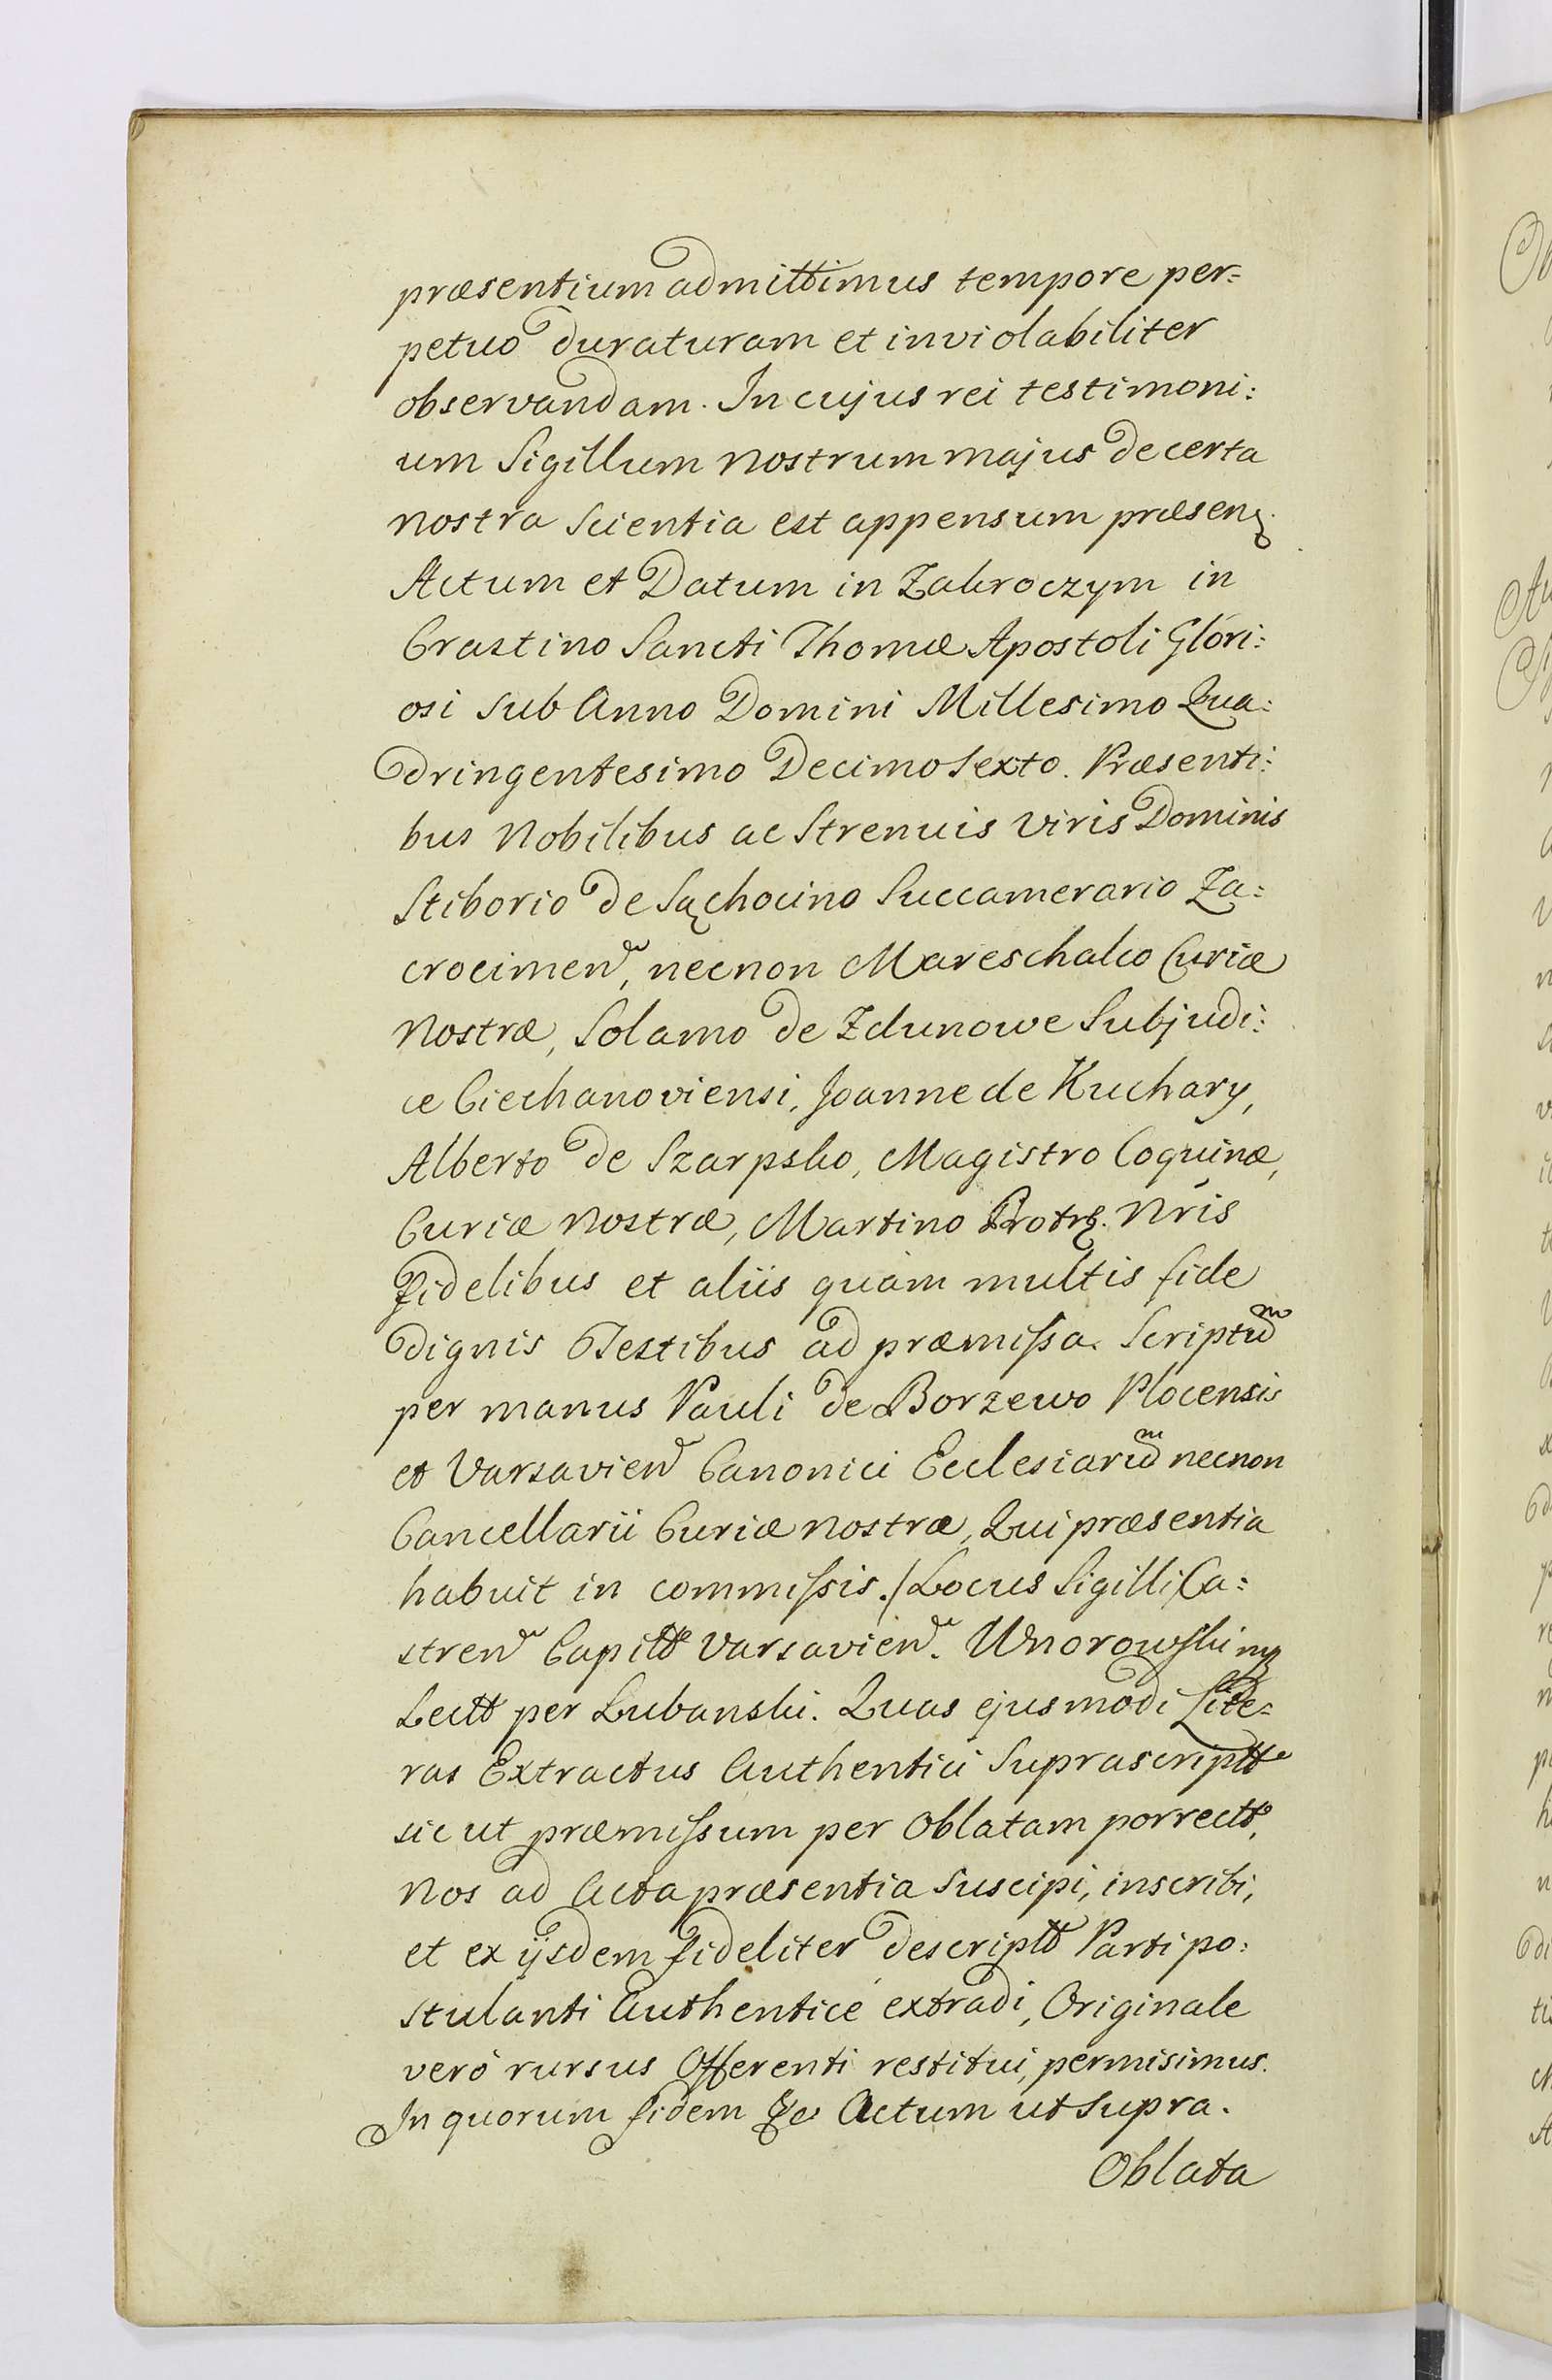 præsentium admittimus tempore per=
petuo duraturam et inviolabiliter
observandam. In cujus rei testimoni:
um Sigillum nostrum majus de certa
nostra scientia est appensum præsen.
Actum et Datum in Zakroczym in
Crastino Sancti Thomæ Apostoli Glori:
osi sub Anno Domini Millesimo Qua:
dringentesimo Decimo sexto. Præsenti:
bus Nobilibus ac Strenuis viris Dominis
Stiborio de Sąchocino Succamerario Za:
crocimen, necnon Mareschalco Curiæ
nostræ, Solamo de Zdunowe Subjudi:
ce Ciechanoviensi, Joanne de Kuchary,
Alberto de Szarpsko, Magistro Coquinæ,
Curiæ nostræ, Martino Nris
fidelibus et aliis quàm multis fide
dignis Testibus ad præmissa. Scriptum
per manus Pauli de Borzewo Plocensis
et Varsavien Canonici Ecclesiarum necnon
Cancellarii Curiæ nostræ, Qui præsentia
habuit in commissis. /Locus Sigilli/ Ca:
stren Capitt Varsavien. Unorowski mp
Lectt per Lubanski. Quas ejusmodi Lite=
ras Extractus Authentici Suprascriptt
sic ut præmissum per Oblatam porrectt,
Nos ad Acta præsentia suscipi, inscribi,
et ex ijsdem fideliter descriptt Parti po:
stulanti Authenticè extradi, Originale
verò rursus Offerenti restitui, permisimus.
In quorum fidem &c Actum ut supra.
Oblata